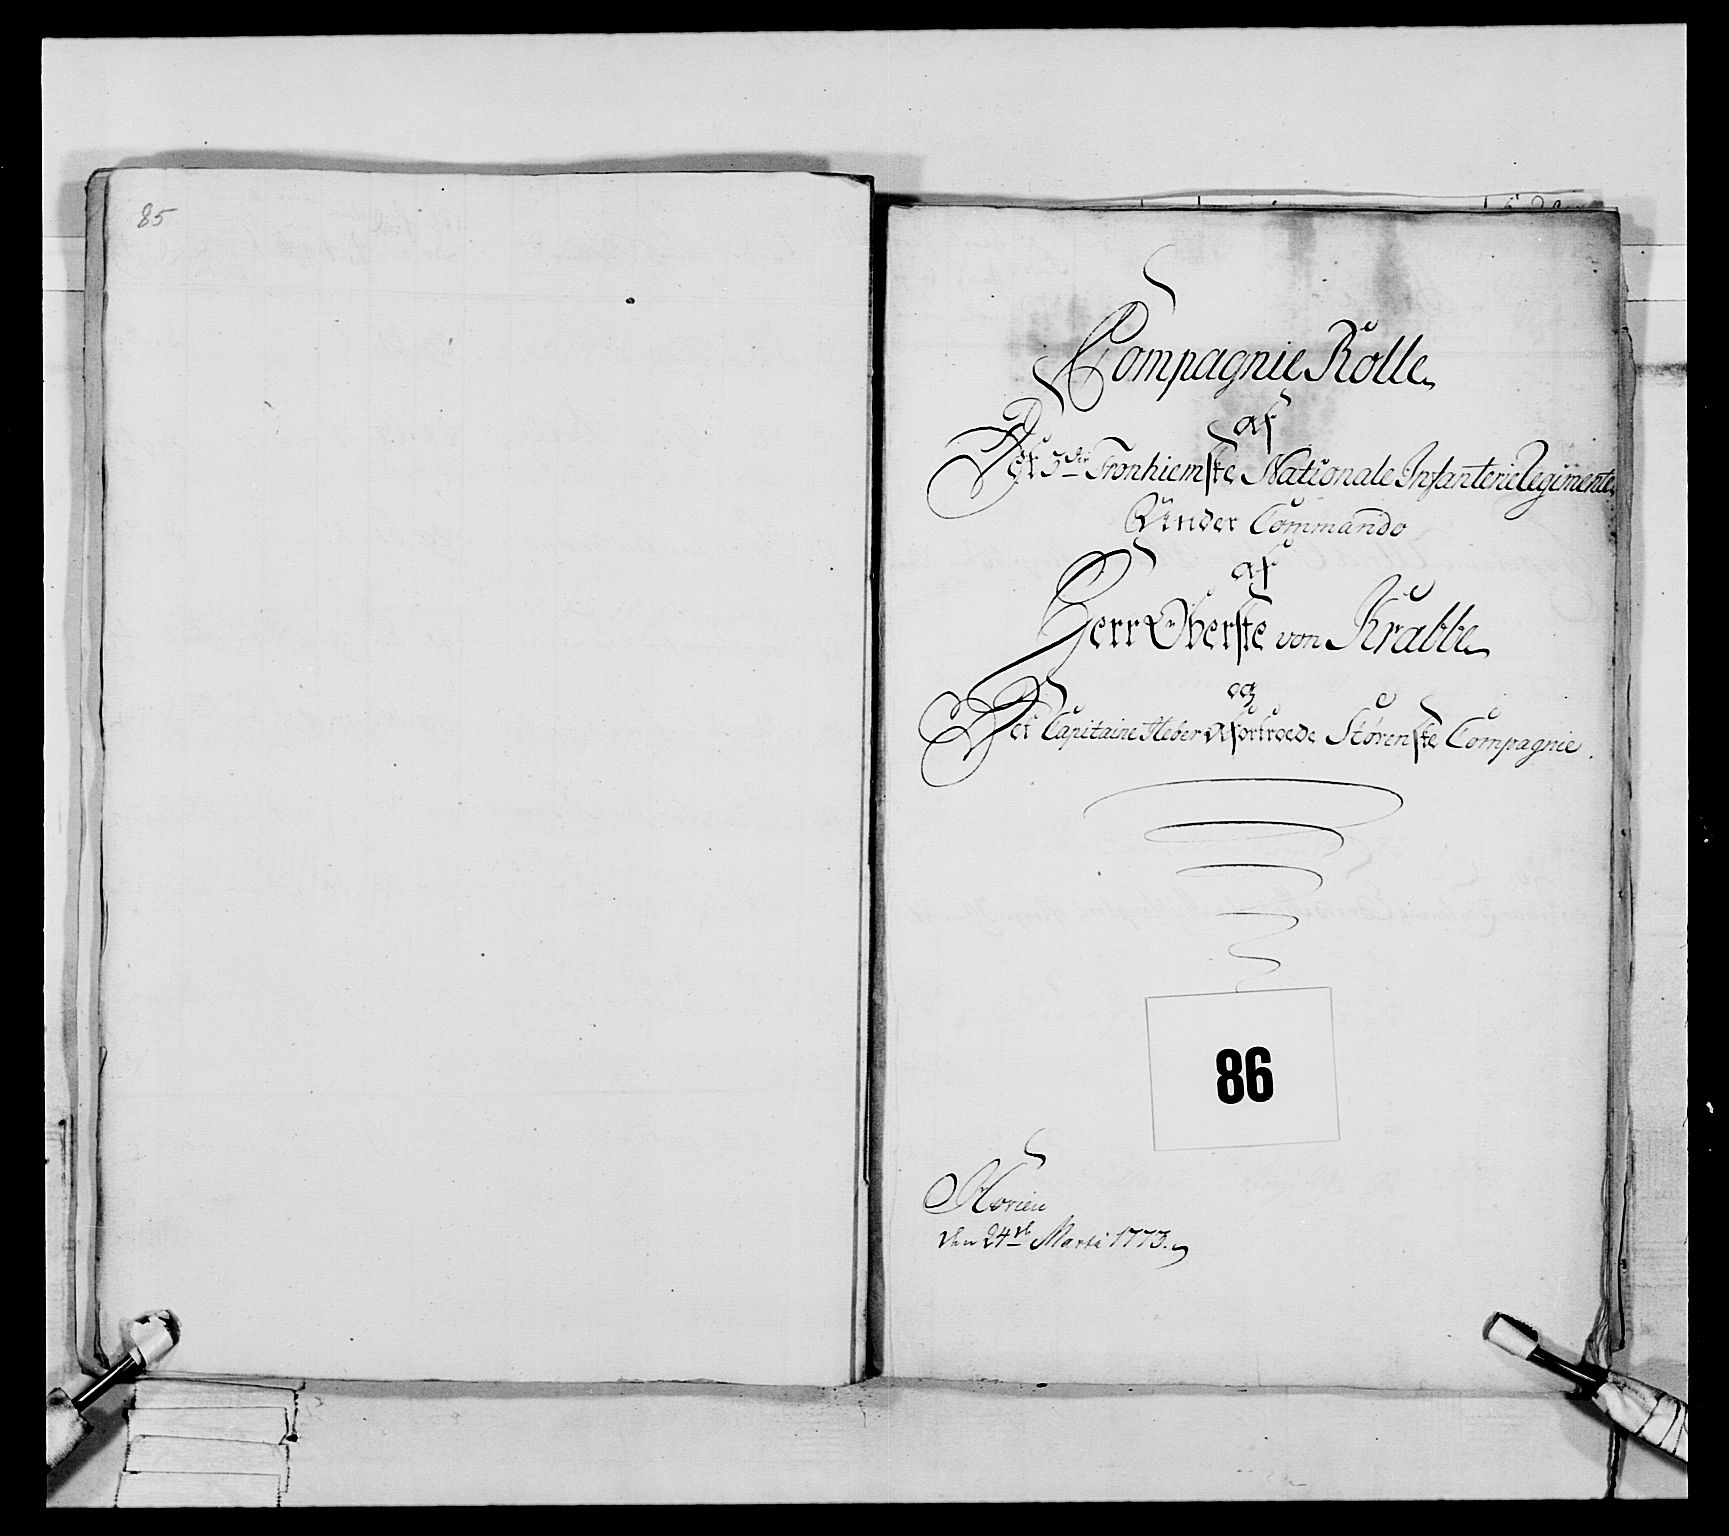 85
Compagnie Rolle
af
Det 3die Tronhiemske Nationale Infanterie Regimente
Under Commando
af
Herr Oberste von Krabbe
og
Det Capitaine Heber Afortroede Størenske Compagnie.
86
den 24de Marti 1773.